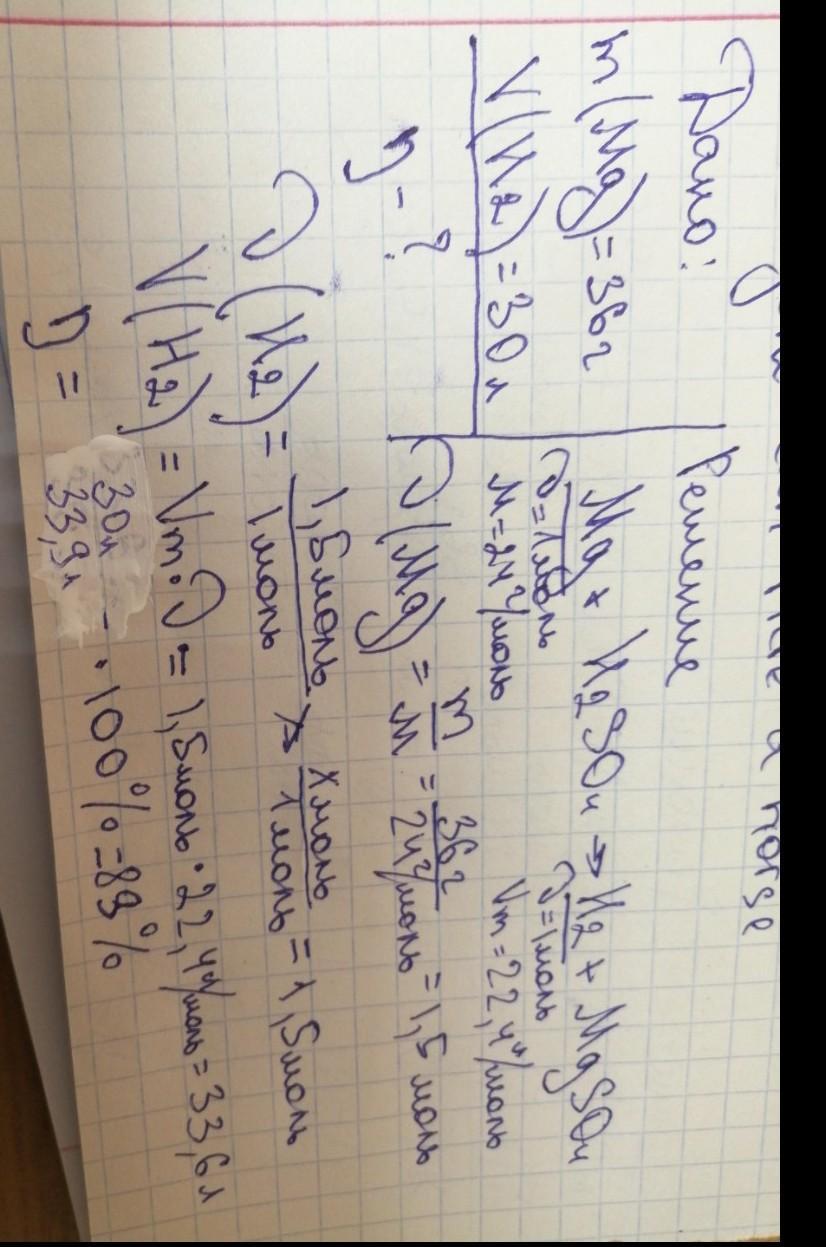 Дано:
m(Mg)=36г
V(H2)=30л
η-?
Решение
Mg + H2SO4 → H2 + MgSO4
ν=1моль ν=1моль
M=24г/моль Vm=22,4л/моль
ν(Mg) = m/M = 36г/24г/моль = 1,5 моль
ν(H2) = 1,5моль/1моль > xмоль/1моль = 1,5моль
V(H2) = Vm·ν = 1,5моль·22,4л/моль=33,6л
η = 30л/33,9л - ·100%=89%